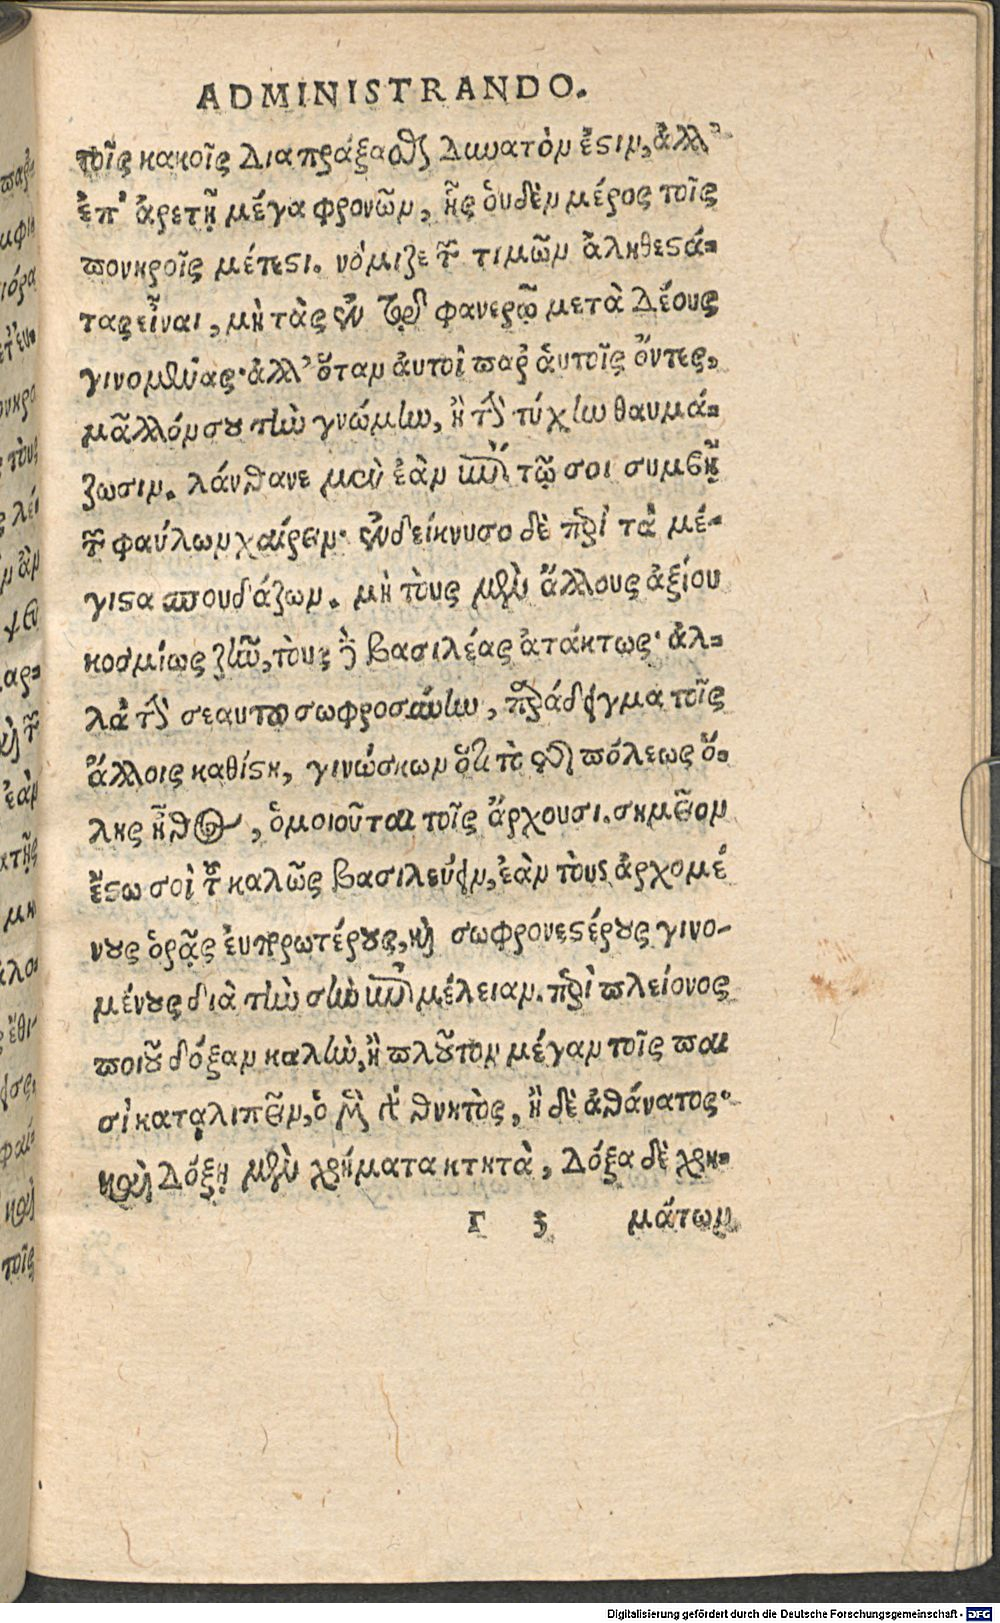 ADMINISTRANDO.
τοῖς κακοῖς διαπράξασθαι δυνατὸν ἐστιν, ἀλλ'
ἐπ' ἀρετῇ μέγα φρονῶν, ἧς ὀυδὲν μέρος τοῖς
πονηροῖς μέτεστι. νόμιζε τῶν τιμῶν ἀληθεστά-
τας εἶναι, μὴ τὰς ἐν τῷ φανερῷ μετὰ δέους
γινομένας· ἀλλ' ὅταν ἀυτοὶ παρ' ἁυτοῖς ὄντες,
μᾶλλόν σου τὴν γνώμην, ἢ τὴν τύχην θαυμά-
ζωσιν. λάνθανε μὲν ἐὰν ἐπί τῳ σοι συμβῇ
τῶν φαύλων χαίρειν· ἐνδείκνυσο δὲ περὶ τὰ μέ-
γιστα σπουδάζων. μὴ τοὺς μὲν ἄλλους ἀξίου
κοσμίως ζῆν, τοὺς δὲ βασιλέας ἀτάκτως· ἀλ-
λὰ τὴν σεαυτοῦ σωφροσύνην, παράδειγμα τοῖς
ἄλλοις καθίστη, γινώσκων ὅτι τὸ τῆς πόλεως ὅ-
λης ἦθος, ὁμοιοῦται τοῖς ἄρχουσι. σημεῖον
ἔστω σοὶ τοῦ καλῶς βασιλεύειν, ἐὰν τοὺς ἀρχομέ
νους ὁρᾷς ἐυπορωτέρους, καὶ σωφρονεστέρους γινο-
μένους διὰ τὴν σὴν ἐπιμέλειαν. περὶ πλείονος
ποιοῦ δόξαν καλὴν, ἢ πλοῦτον μέγαν τοῖς παι
σὶ καταλιπεῖν, ὁ μὲν γὰρ θνητὸς, ἡ δὲ ἀθάνατος·
καὶ δόξῃ μὲν χρήματα κτητὰ, δόξα δὲ χρη-
Γ 3 μάτων